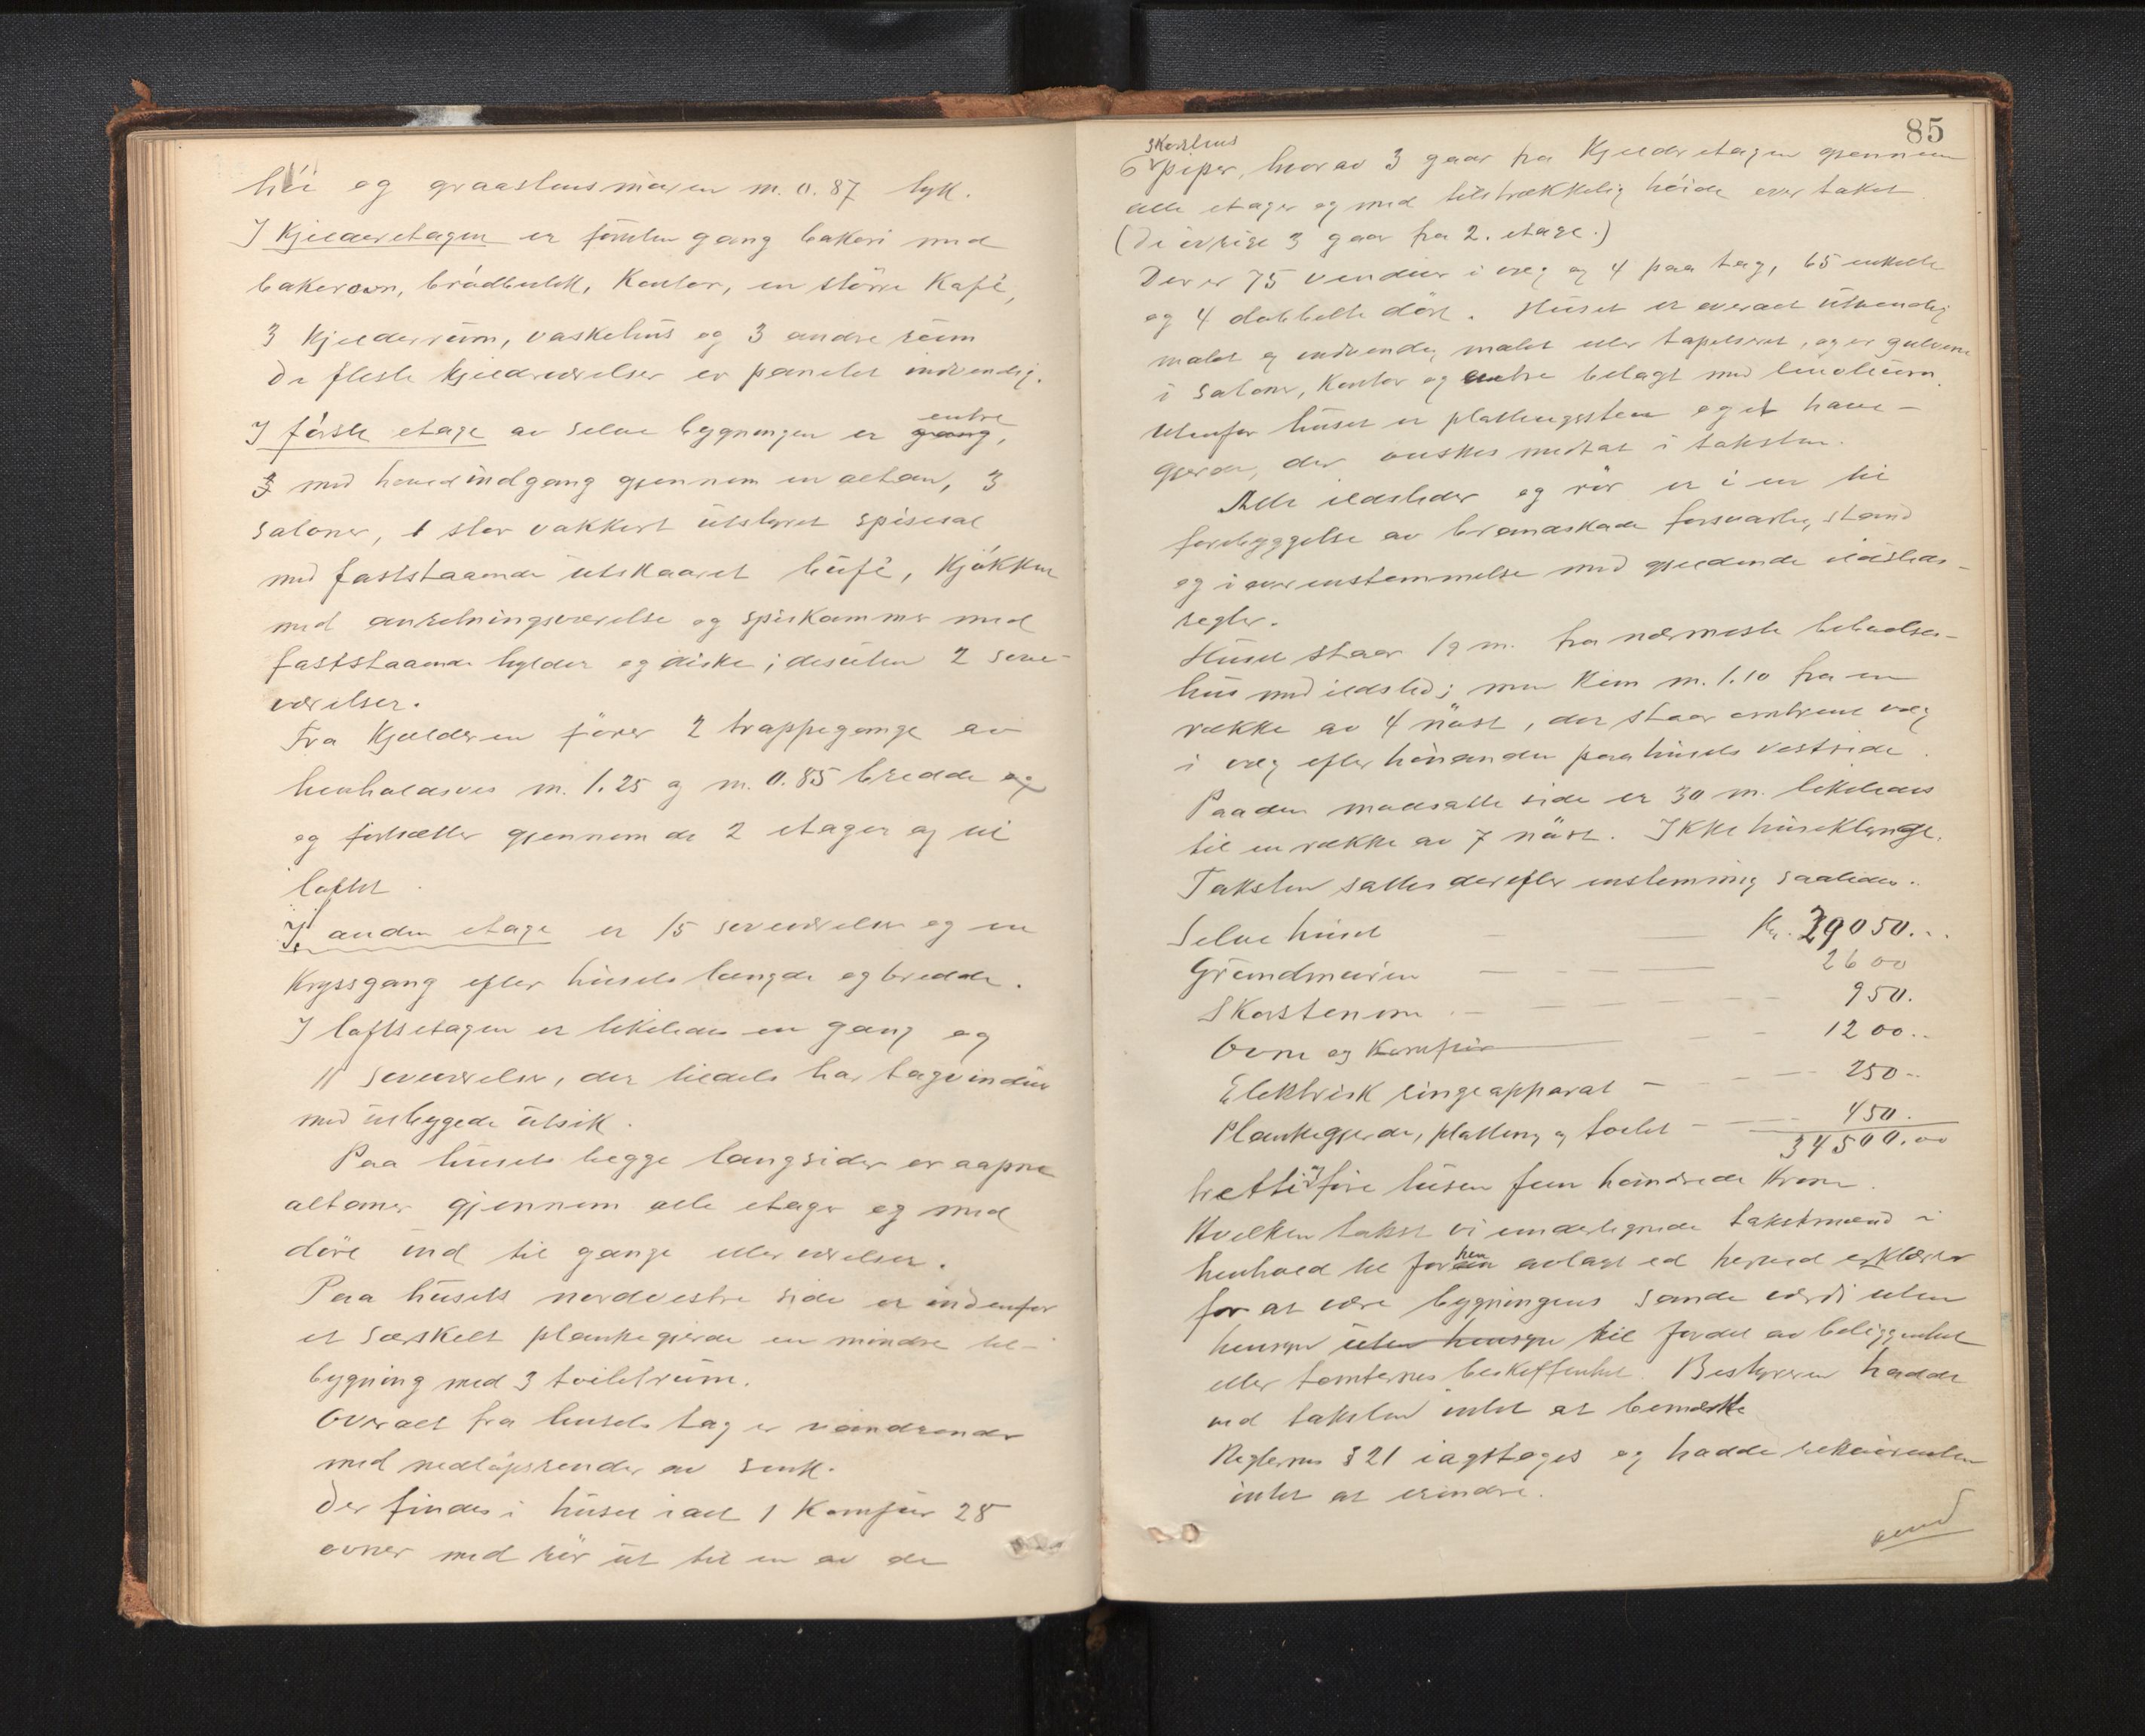 høi og graastensmuren m. 0.87 tyk.
I Kjelderetagen er foruten gang bakeri med
bakerovn, brødbutik, Kontor, en större Kafé,
3 Kjelderrum, vaskehus og 3 andre rum
De fleste kjelderværelser er panelet indvendig.
I förste etage av selve bygningen er gang, entre
3 med hovedindgang gjennem en altan, 3
saloner, 1 stor vakkert utstyret spisesal
med faststaaende utskaaret büfé, Kjökken
med anretningsværelse og spiskammer med
faststaaende hylder og diske; desuten 2 sove-
værelser.
Fra Kjelderen förer 2 trappegange av
henholdsvis m. 1.25 og m. 0.85 bredde og
og fortsætter gjennem de 2 etager og til
loftet.
I anden etage er 15 soveværelser og en
Kryssgang efter husets længde og bredde.
I loftsetagen er likeledes en gang og
11 soveværelser, der tildels har tagvinduer
med utbyggede utsik.
Paa husets begge langsider er aapne
altaner gjennem alle etager og med
döre ind til gange eller værelser.
Paa husets nordvestre side er indenfor
et særskilt plankegjerde en mindre til-
bygning med 3 toiletrum.
Overalt fra husets tag er vandrender
med nedlöpsrender av sink.
Der findes i huset ialt 1 Komfur 28
ovner med rör ut til en av de
85
skorstens
6 piper, hvorav 3 gaar fra Kjelderetagen gjennem
alle etager og med tilstrækkelig höide over taket
(De övrige 3 gaar fra 2. etage.)
Der er 75 vinduer i væg og 4 paa tag, 65 enkelte
og 4 dobbelte döre. Huset er overalt utvendig
malet og indvendig malet eller tapetseret, og er gulvene
i saloner, Kontor og entre belagt med linoleum.
Utenfor huset er plattingssten og et have-
gjerde, der önskes medtat i taksten.
Alle ildsteder og rör er i en til
forebyggelse av brandskade forsvarlig stand
og i overenstemmelse med gjeldende ildsteds-
regler.
Huset staar 19 m. fra nærmeste beboelses-
hus med ildsted; men kun m. 1.10 fra en
række av 4 nöst, der staar omtrent væg
i væg efter hinanden paa husets vestside.
Paa den motsatte side er 30 m. likeledes
til en række av 7 nöst. Ikke huseklynge.
Taksten sattes derefter enstemmig saaledes.
Selve huset — — Kr. 29050...
Grundmuren — - - — 2600
Skorstenene . - — - - - 950.
Ovne og Komfür — - - 1200..
Elektrisk ringeapparat — - - - 250..
Plankegjerde, platting og toilet - — - 450.
34500.00
tretti og fire tusen fem hundrede Kroner.
Hvilken takst vi undertegnede takstmænd i
henhold til forhen avlagt ed herved erklærer
for at være bygningens sande værdi uten
hensyn uten hensyn til fordel av beliggenhet
eller tomternes beskaffenhet. Bestyreren hadde
ved taksten intet at bemærke
Reglernes § 21 iagttoges og hadde rekvirenten
intet at erindre.